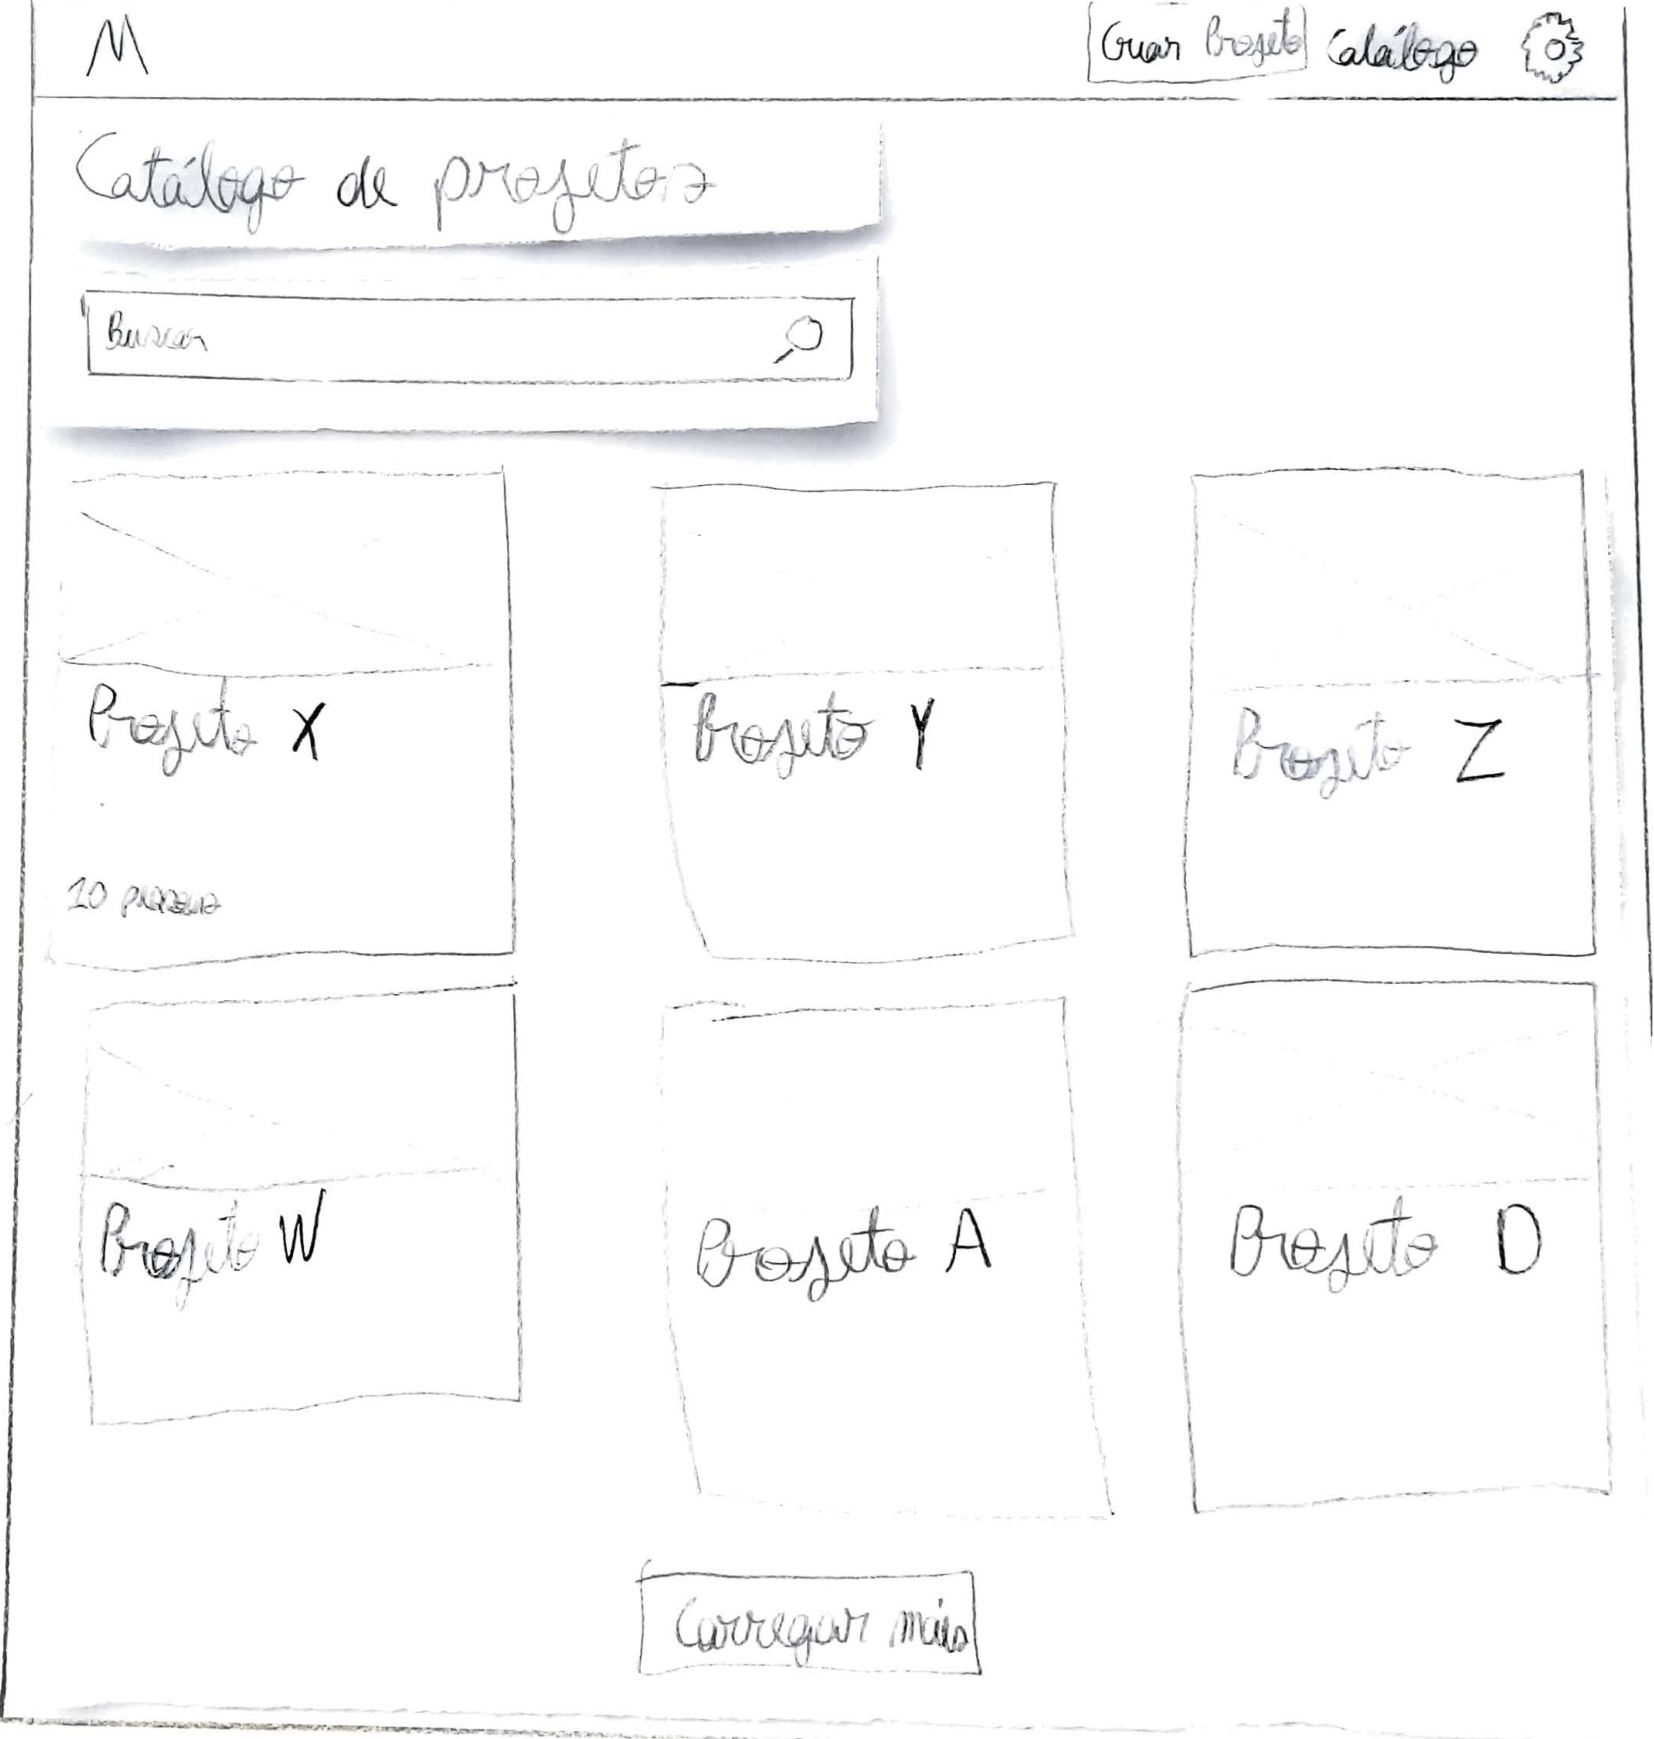 M
Criar Projeto Catálogo
Catálogo de projetos
Buscar
Projeto X
Projeto Y
Projeto Z
10
Projeto W
Projeto A
Projeto D
Carregar mais